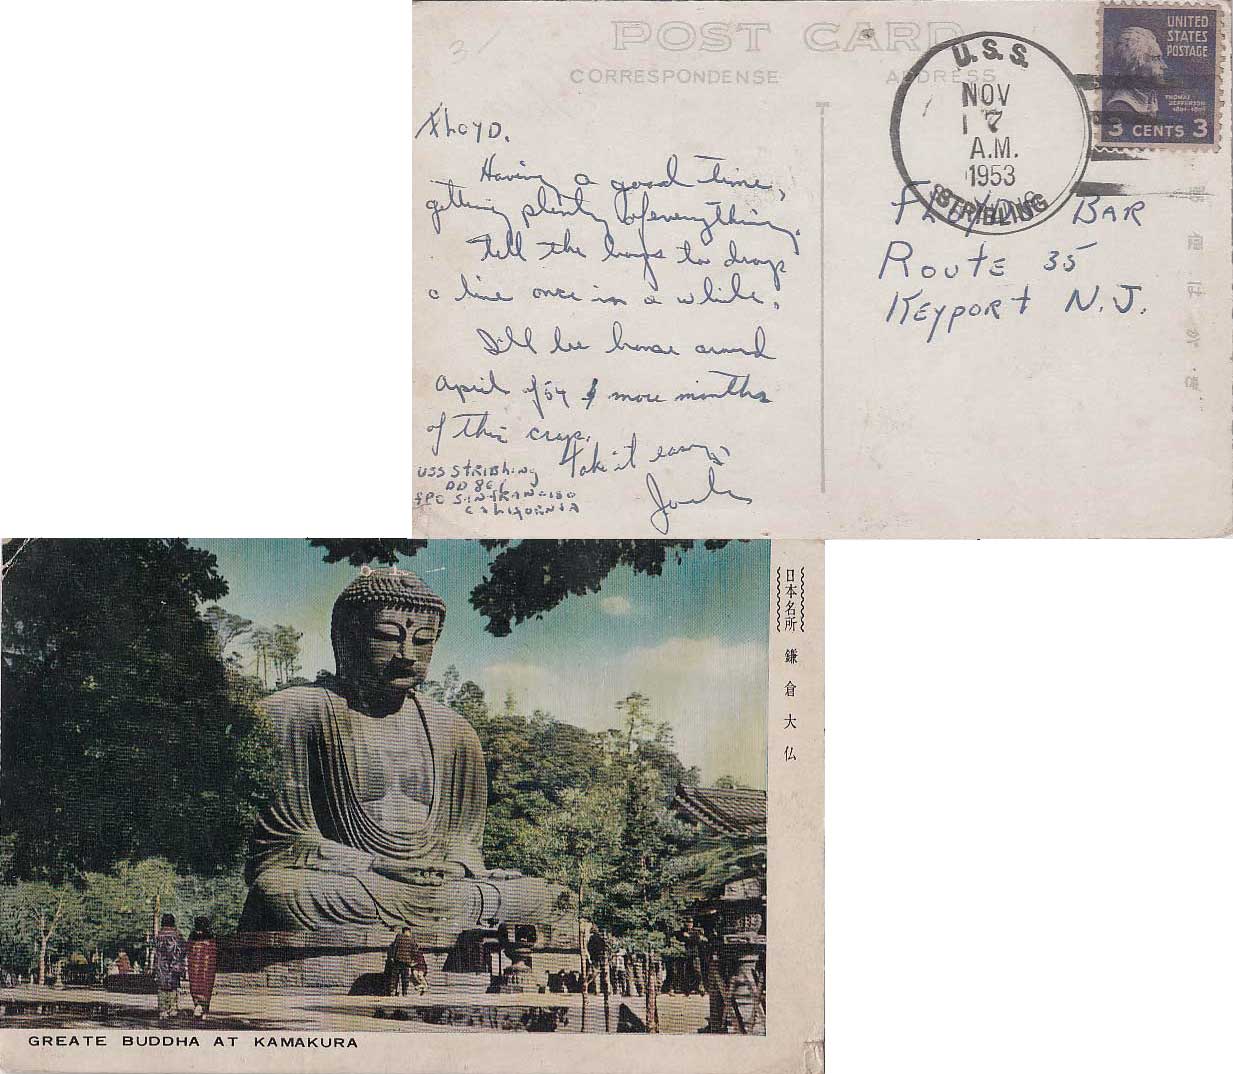 POST CARD
CORRESPONDENSE
ADDRESS
UNITED
STATES
POSTAGE
THOMAS
JEFFERSON
3 CENTS 3
U.S.S.
NOV
17
A.M.
1953
STRIBLING
FLOYD.
Having a good time,
getting plenty of everything.
Tell the boys to drop
a line once in a while.
I'll be home around
April of 54 more months
of this crap.
Take it easy,
USS STRIBLING
DD 867
FPO SAN FRANCISCO
CALIFORNIA
FLOYDS BAR
ROUTE 35
KEYPORT N.J.
日本名所 鎌倉大仏
GREATE BUDDHA AT KAMAKURA